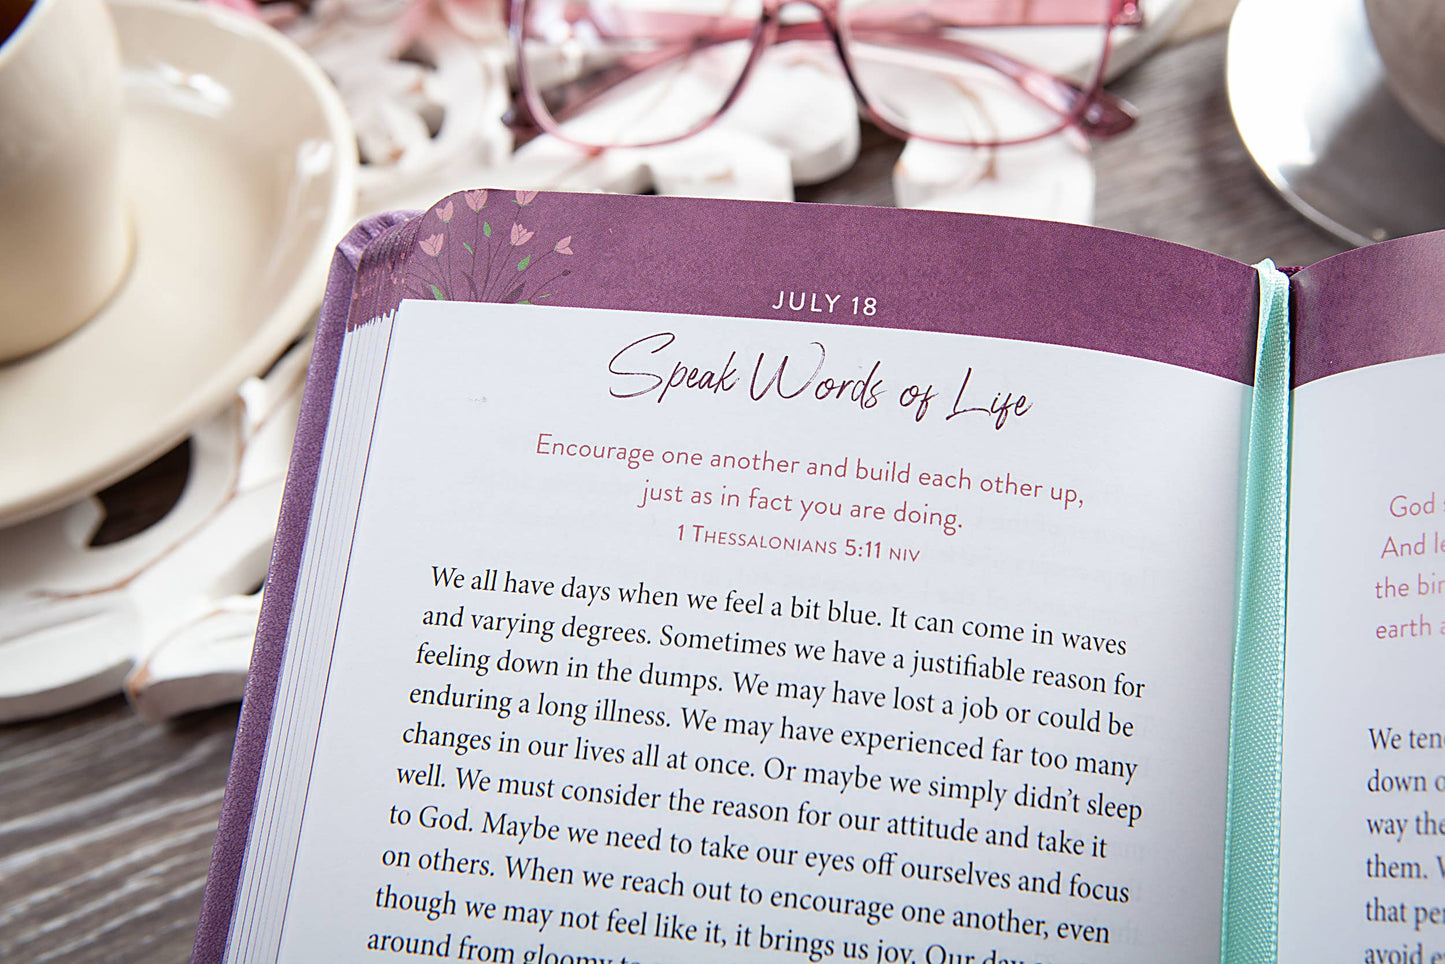 JULY 18
Speak Words of Life
Encourage one another and build each other up,
just as in fact you are doing.
1 THESSALONIANS 5:11 NIV
We all have days when we feel a bit blue. It can come in waves
and varying degrees. Sometimes we have a justifiable reason for
feeling down in the dumps. We may have lost a job or could be
enduring a long illness. We may have experienced far too many
changes in our lives all at once. Or maybe we simply didn't sleep
well. We must consider the reason for our attitude and take it
to God. Maybe we need to take our eyes off ourselves and focus
on others. When we reach out to encourage one another, even
though we may not feel like it, it brings us joy. Our day
around from gloomy
God
And
the
earth
We
down
way
them.
that
avoid